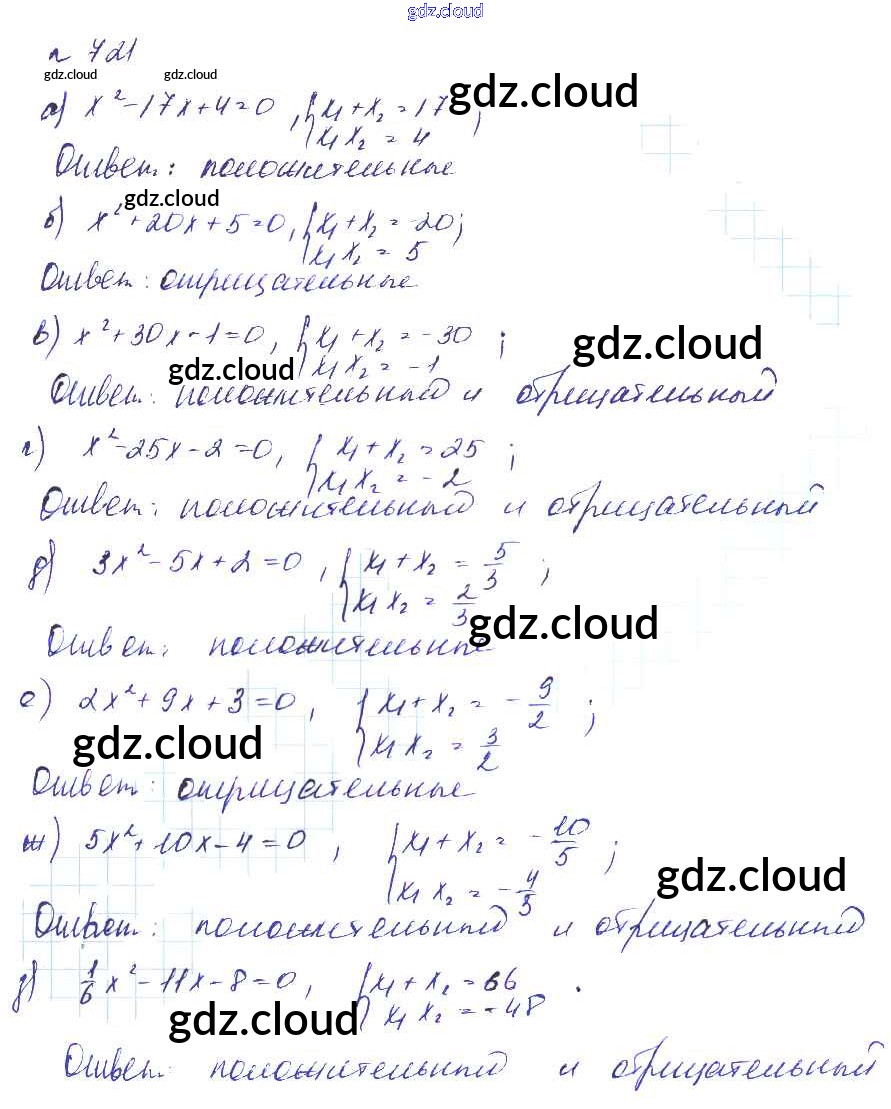 gdz.cloud
n 721
gdz.cloud gdz.cloud gdz.cloud
а) x² - 17x + 4 = 0, { x₁ + x₂ = 17
x₁ x₂ = 4 ;
Ответ: положительные
gdz.cloud
б) x² + 20x + 5 = 0, { x₁ + x₂ = -20;
x₁ x₂ = 5
Ответ: отрицательные
в) x² + 30x - 1 = 0, { x₁ + x₂ = -30 ; gdz.cloud
gdz.cloud x₁ x₂ = -1
Ответ: положительный и отрицательный
г) x² - 25x - 2 = 0, { x₁ + x₂ = 25 ;
x₁ x₂ = -2
Ответ: положительный и отрицательный
д) 3x² - 5x + 2 = 0, { x₁ + x₂ = 5/3 ;
x₁ x₂ = 2/3 gdz.cloud
Ответ: положительные
е) 2x² + 9x + 3 = 0, { x₁ + x₂ = - 9/2 ;
gdz.cloud x₁ x₂ = 3/2
Ответ: отрицательные
ж) 5x² + 10x - 4 = 0, { x₁ + x₂ = - 10/5 ;
x₁ x₂ = - 4/5 gdz.cloud
Ответ: положительный и отрицательный
д) 1/6 x² - 11x - 8 = 0, { x₁ + x₂ = 66 .
gdz.cloud x₁ x₂ = -48
Ответ: положительный и отрицательный